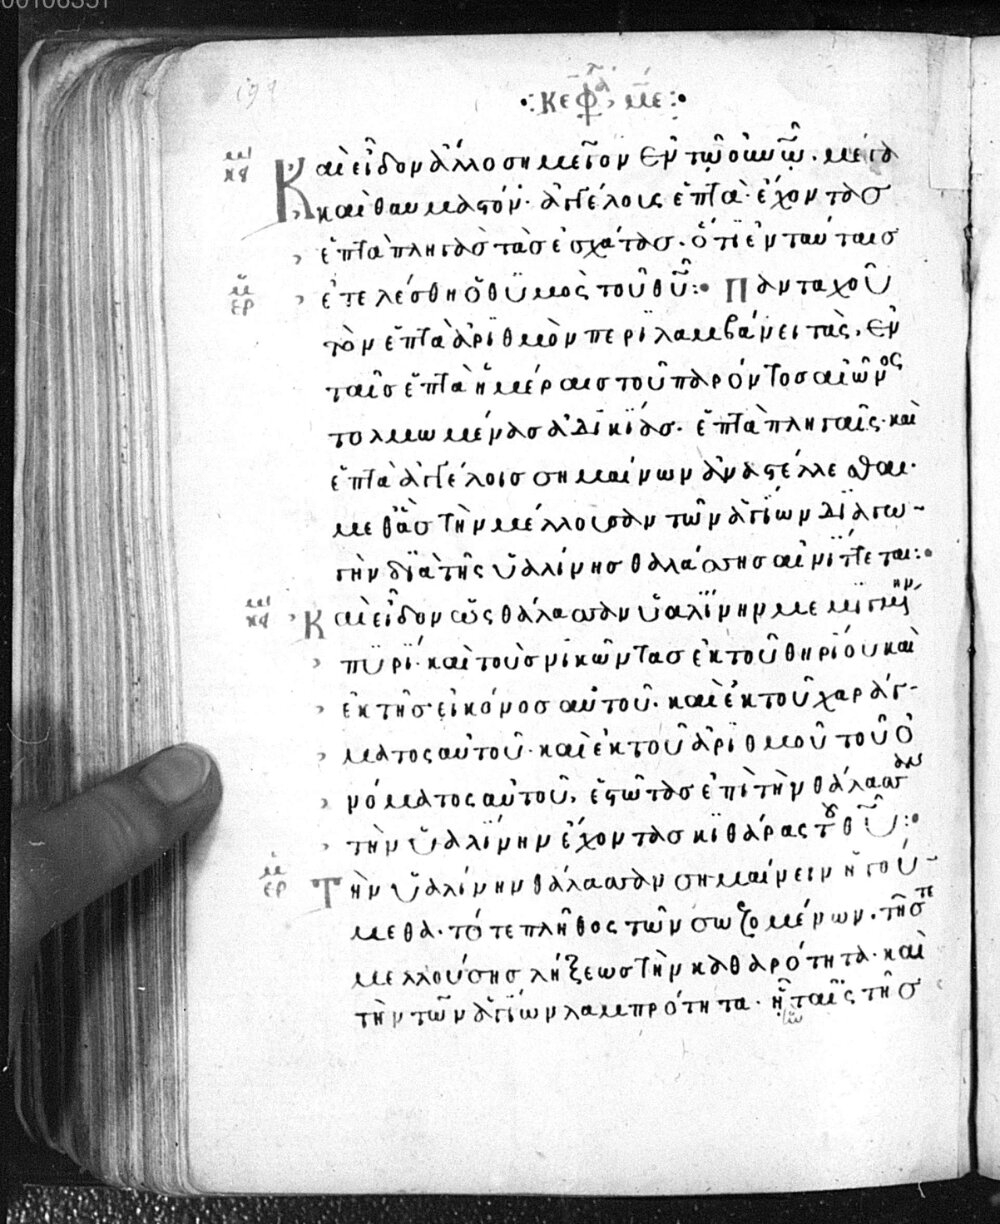 ·:κεφα, με:·
Καὶ εἶδον ἄλλο σημεῖον ἐν τῷ οὐνῷ. μέγα
καὶ θαυμαστόν· ἀγγέλους ἑπτὰ· ἔχοντας
ἑπτὰ πληγὰς τὰς ἐσχάτας. ὅτι ἐν ταύταις
ἐτελέσθη ὁ θυμὸς τοῦ θυ:· Πανταχοῦ
τὸν ἑπτὰ ἀριθμὸν περιλαμβάνει τὰς, ἐν
ταῖς ἑπτὰ ἡμέραις τοῦ παρόντος αἰῶνος
τολμωμένας ἀδικίας. ἑπτὰ πληγαῖς· καὶ
ἑπτὰ ἀγγέλοις σημαίνων ἀναστέλλεσθαι·
μεθ' ἃς τὴν μέλλουσαν τῶν ἁγίων διαγω
γὴν διὰ τῆς ὑαλίνης θαλάσσης αἰνίττεται:·
Καὶ εἶδον ὡς θάλασσαν ὑαλίνην μεμιγμένην
πυρί· καὶ τοὺς νικῶντας ἐκ τοῦ θηρίου καὶ
ἐκ τῆς εἰκόνος αὐτοῦ· καὶ ἐκ τοῦ χαράγ
ματος αὐτοῦ· καὶ ἐκ τοῦ ἀριθμοῦ τοῦ ὀ
νόματος αὐτοῦ, ἑστῶτας ἐπὶ τὴν θάλασσαν
τὴν ὑαλίνην ἔχοντας κιθάρας τοῦ θυ:·
Τὴν ὑαλίνην θάλασσαν σημαίνειν ἡγού
μεθα· τό τε πλῆθος τῶν σωζομένων. τῆς τε
μελλούσης λήξεως τὴν καθαρότητα· καὶ
τὴν τῶν ἁγίων λαμπρότητα· ἧ ταῖς τῆς